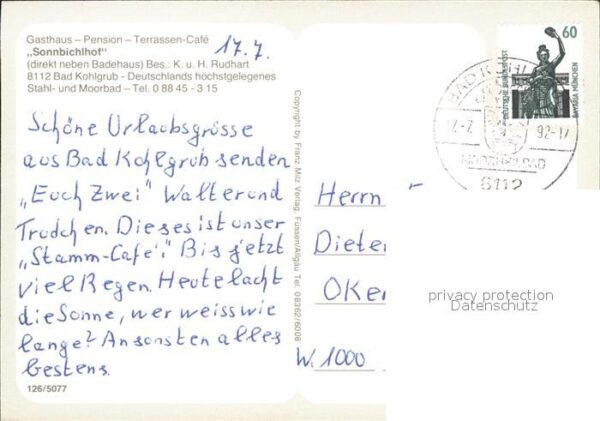 Gasthaus – Pension – Terrassen-Café
„Sonnbichlhof“
(direkt neben Badehaus) Bes.: K. u. H. Rudhart
8112 Bad Kohlgrub - Deutschlands höchstgelegenes
Stahl- und Moorbad – Tel. 0 88 45 - 3 15
17.7.
Schöne Urlaubsgrüsse
aus Bad Kohlgrub senden
„Euch Zwei“ Walter und
Trudchen. Dieses ist unser
„Stamm-Cafe“! Bis jetzt
viel Regen. Heute lacht
die Sonne, wer weiss wie
lange? Ansonsten alles
bestens.
126/5077
Copyright by Franz Milz Verlag, Füssen/Allgäu Tel. 08362/6008
60
DEUTSCHE BUNDESPOST
BAVARIA MÜNCHEN
BAD KOHL
92-17
MOORHEILBAD
8112
Herrn
Dieter
Oker
W. 1000
privacy protection
Datenschutz